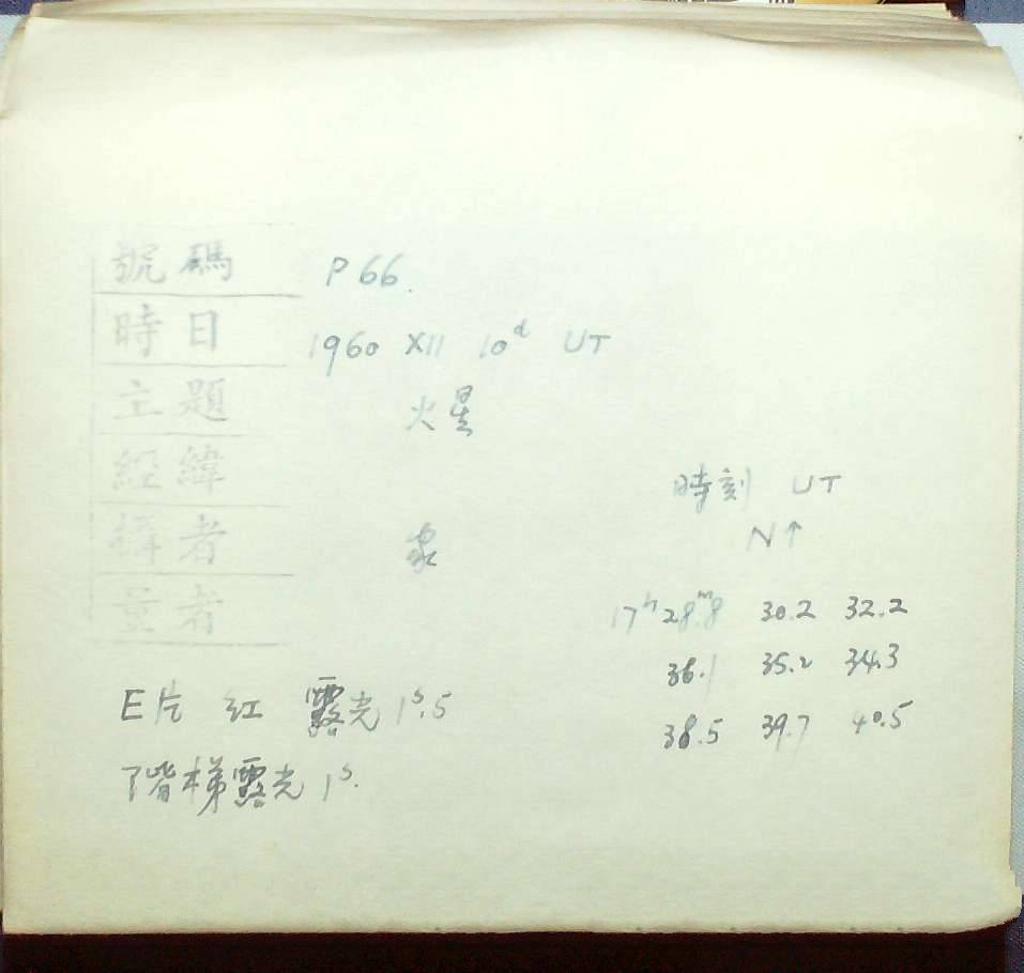 號碼 P 66.
時日 1960 XII 10ᵈ UT
主題 火星
經緯
時刻 UT
攝者
N↑
量者
17ʰ28ᵐ.8 30.2 32.2
36.1 35.2 34.3
38.5 39.7 40.5
E片 紅 露光 1ˢ.5
階梯露光 1ˢ.